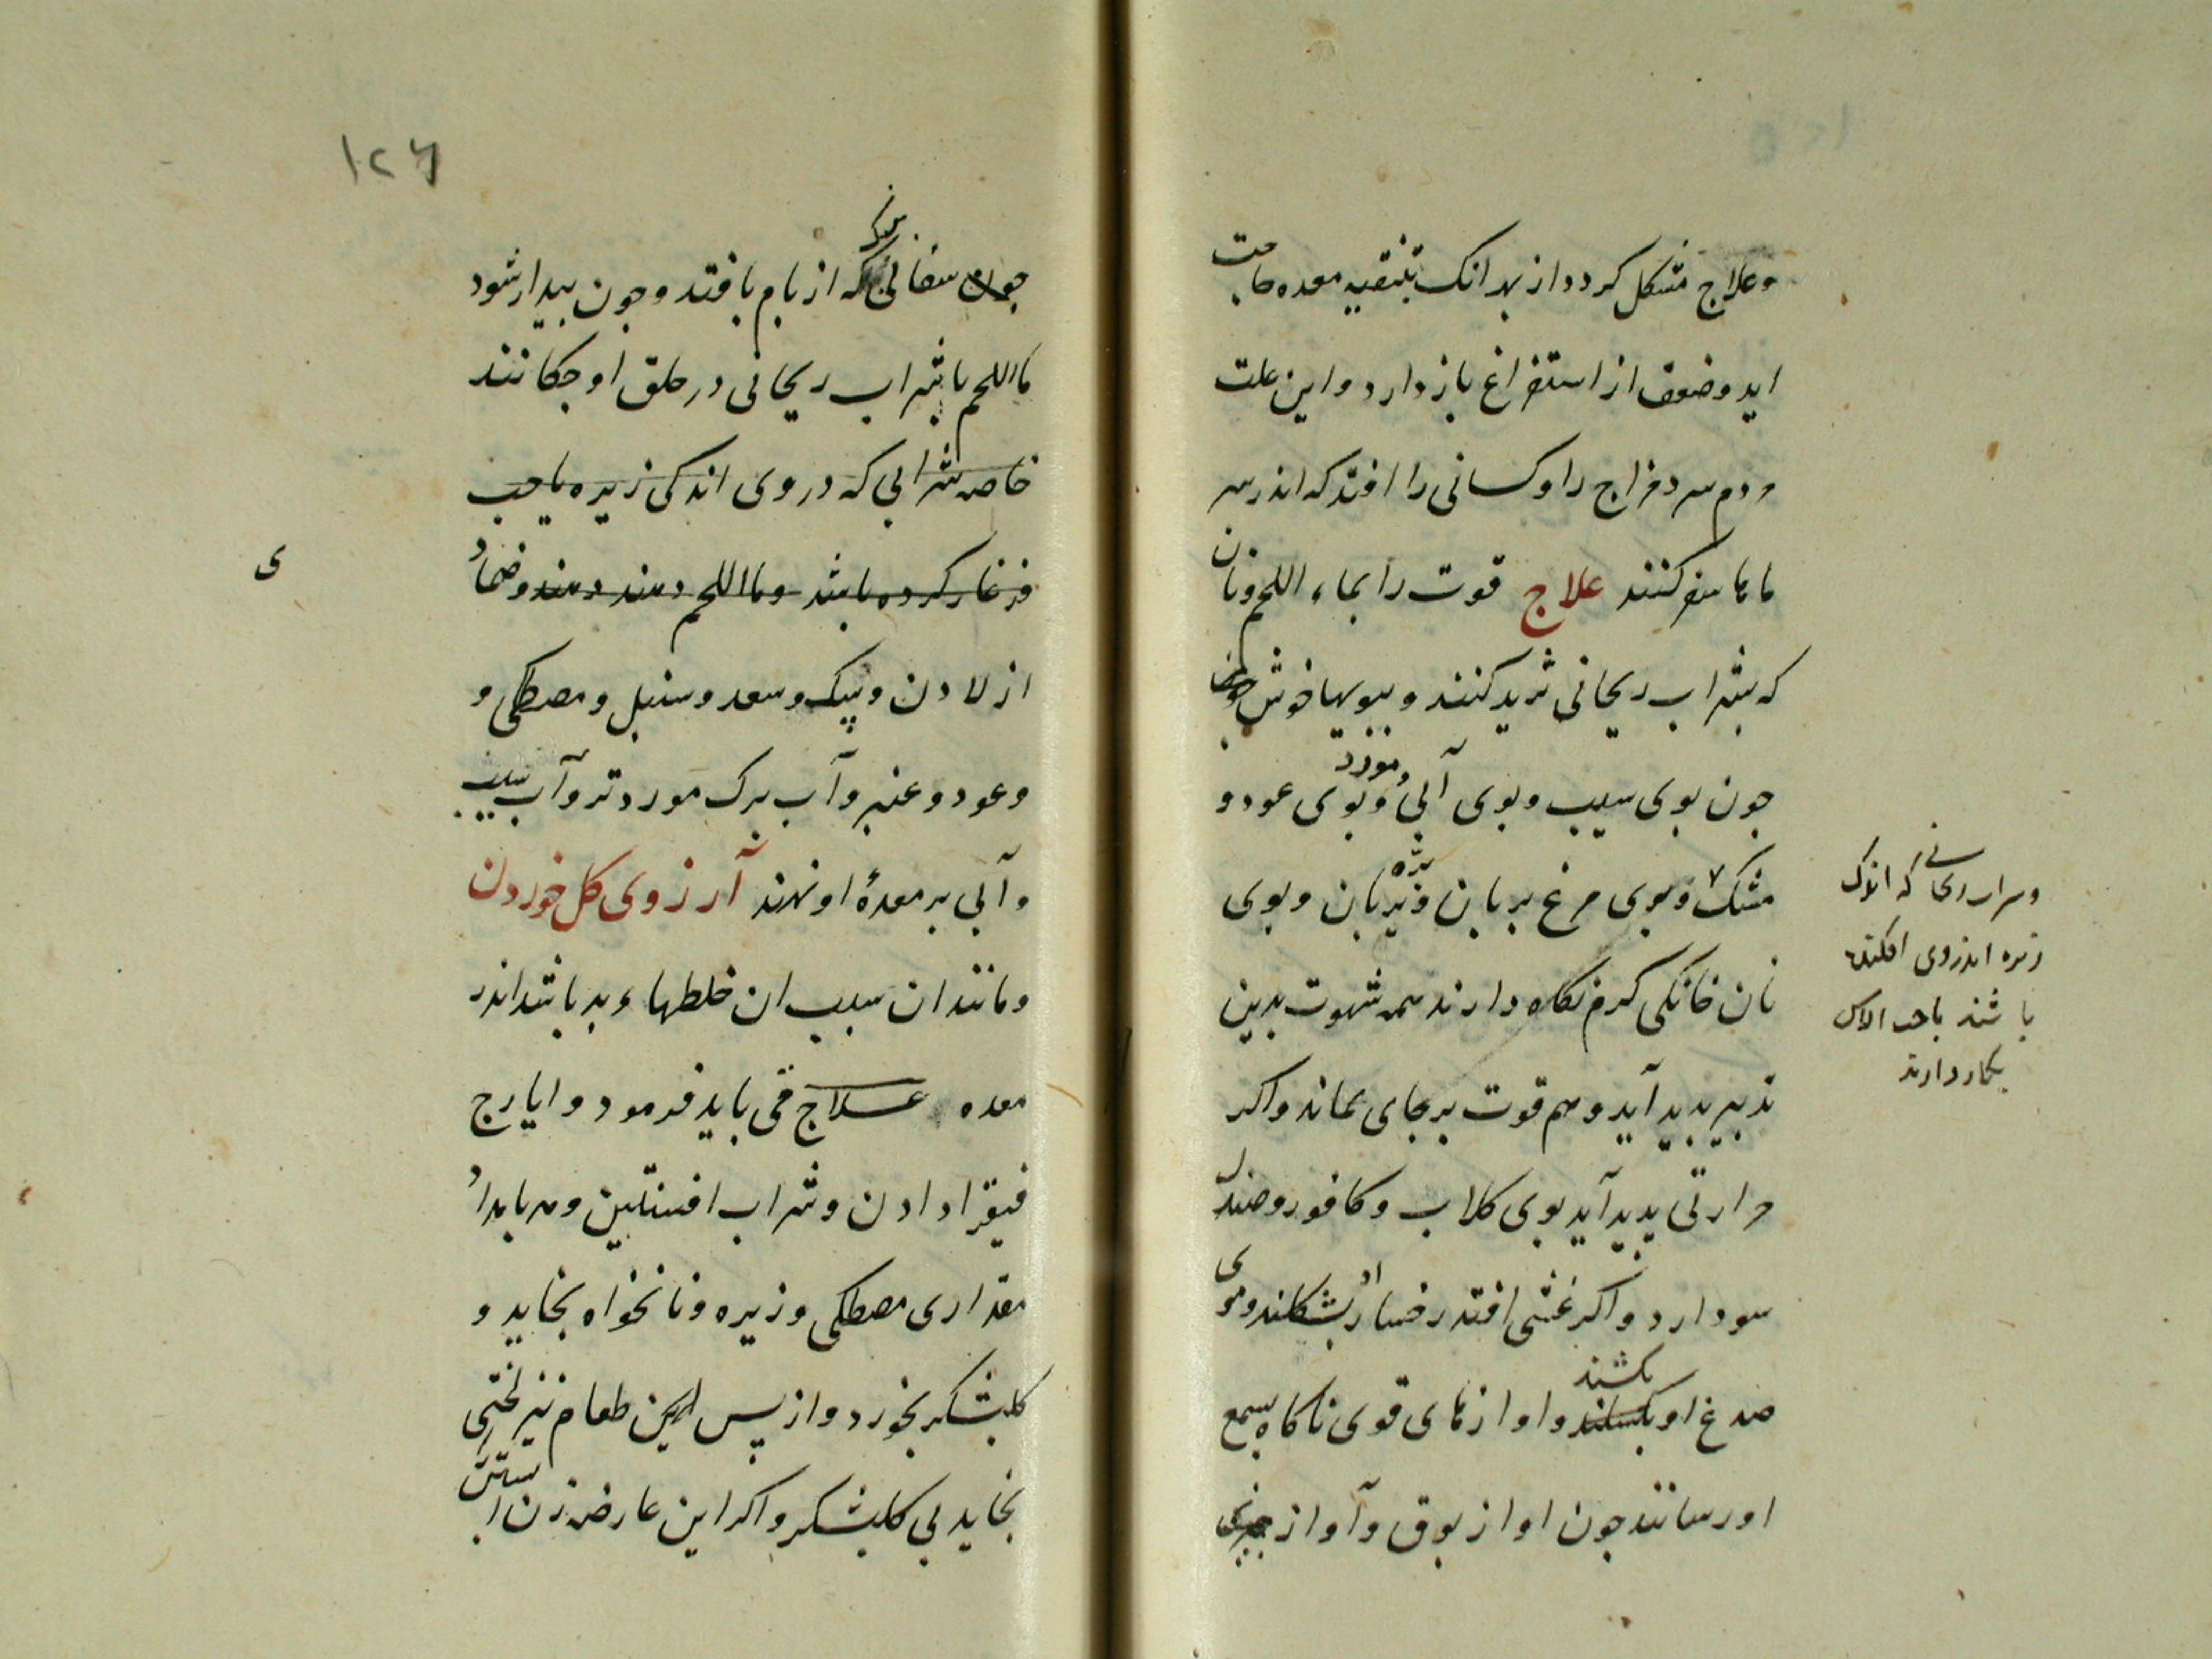 وعلاج مشکل کردد از بهر انک بتنقیه معده حاجت
اید وضعف از استفراغ باز دارد واین علت
مردم سرد مزاج را وکسانی را افتد که اندر سر
ماها سفر کنند علاج قوت را بماء اللحم ونان
که بشراب ریحانی ثرید کنند وببویها خوش
جون بوی سیب وبوی آبی ومورد وبوی عود و
مشک وبوی مرغ بریان وبره بریان وبوی
نان خانکی کرم نکاه دارند همه شهوت بدین
تدبیر بدید آید وهم قوت برجای بماند واکر
حرارتی بدید آید بوی کلاب وکافور وصندل
سود دارد واکر غشی افتد رخسار او بشکلند وموی
صدغ او بکشند واوازهای قوی ناکاه بسمع
اورسانند جون اواز بوق وآواز
که اندک
زیره اندروی افکنده
باشند یا حب الاس
بکار دارند
۱۲۶
سفالی بزرک که از بام بافتد وجون بیدار شود
مااللحم باشراب ریحانی در حلق او جکانند
خاصه شرابی که در وی اندکی زیره یا حب
فرغار کرده باشد ومااللحم دهند وضماد
از لادن وسک وسعد وسنبل ومصطکی و
وعود وعنبر وآب برک مورد تر وآب سیب
وآبی بر معدۀ او نهند آرزوی کل خوردن
ومانند ان سبب ان خلطهاء بد باشد اندر
معده علاج قی باید فرمود وایارج
فیقرا دادن وشراب افسنتین وهر بامداد
مقداری مصطکی وزیره ونانخواه بخاید و
کلبشکر بخورد واز پس این طعام نیز لختی
بخاید بی کلبشکر واکر این عارضه زن ابستن
ی